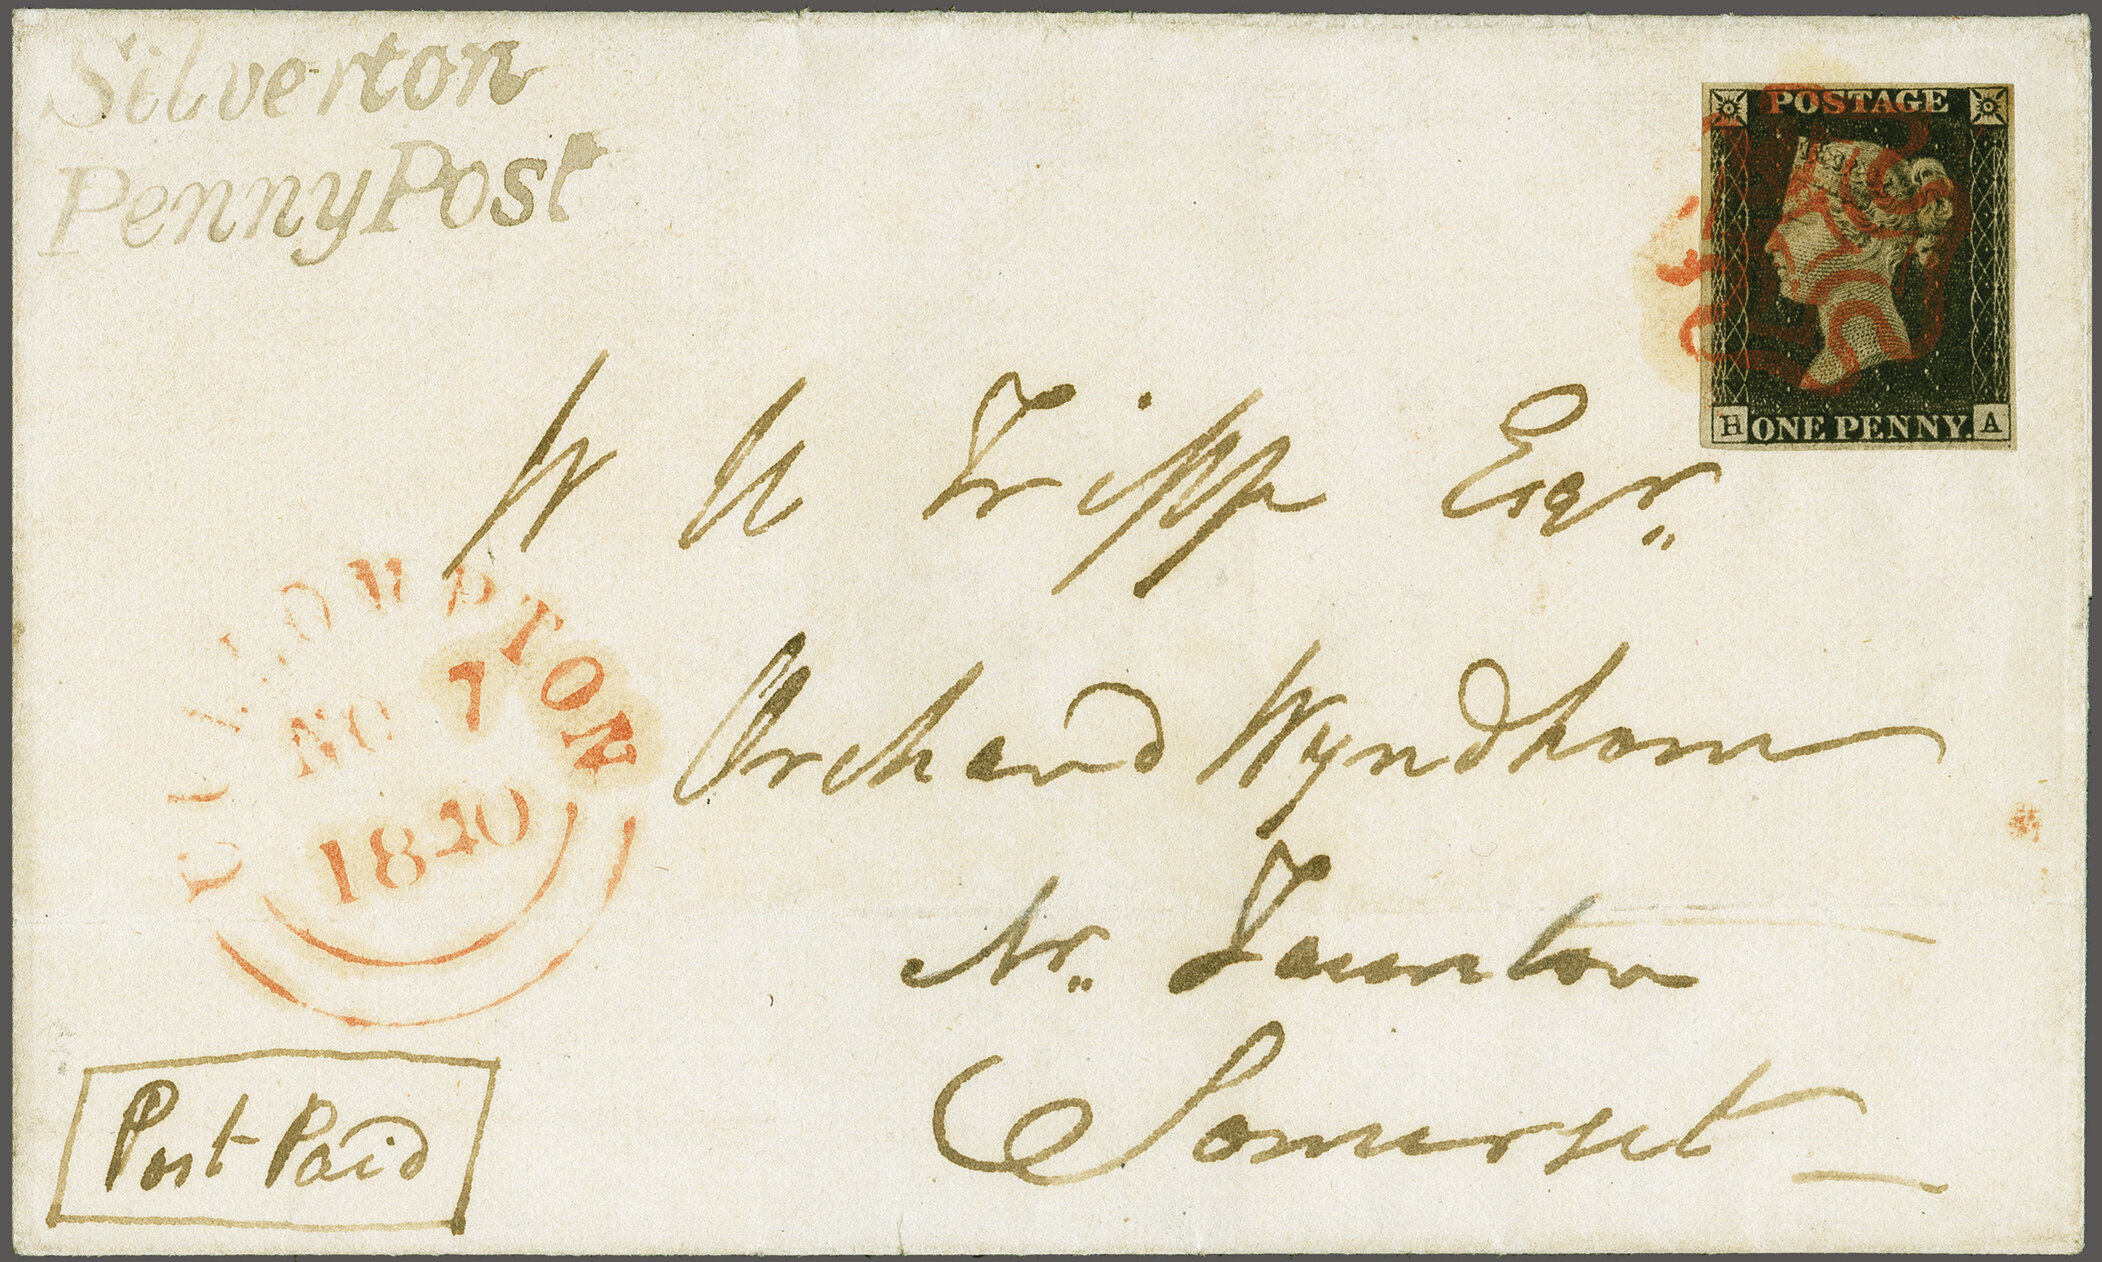 Silverton
Penny Post
POSTAGE
H ONE PENNY. A
W H Tripp Esqr.
CULLOMPTON
NO 7
1840
Orchard Wyndham
Nr. Taunton
Somerset
Post Paid